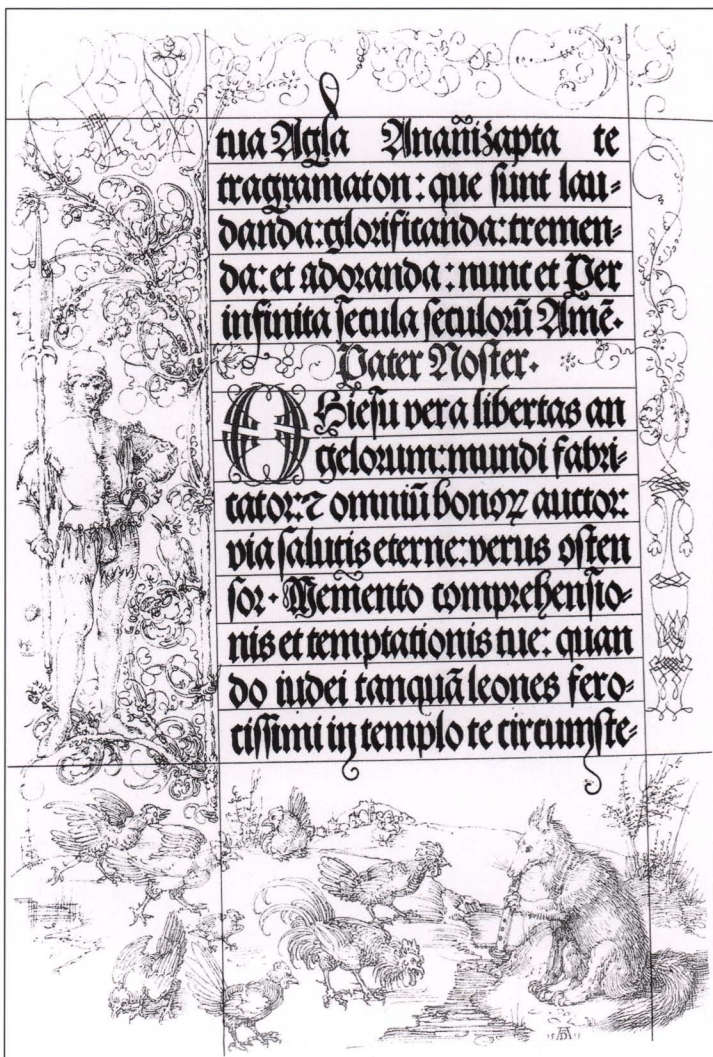 tua Agla Ananizapta te
tragramaton: que sunt lau-
danda: glorificanda: tremen-
da: et adoranda: nunc et Per
infinita secula seculorū Amē.
Pater Noster.
O Hiesu vera libertas an
gelorum: mundi fabri-
cator: ⁊ omniū bonoꝝ auctor:
via salutis eterne: verus osten
sor. Memento comprehensio-
nis et temptationis tue: quan
do iudei tanquā leones fero-
cissimi in templo te circumste-
15 AD 15